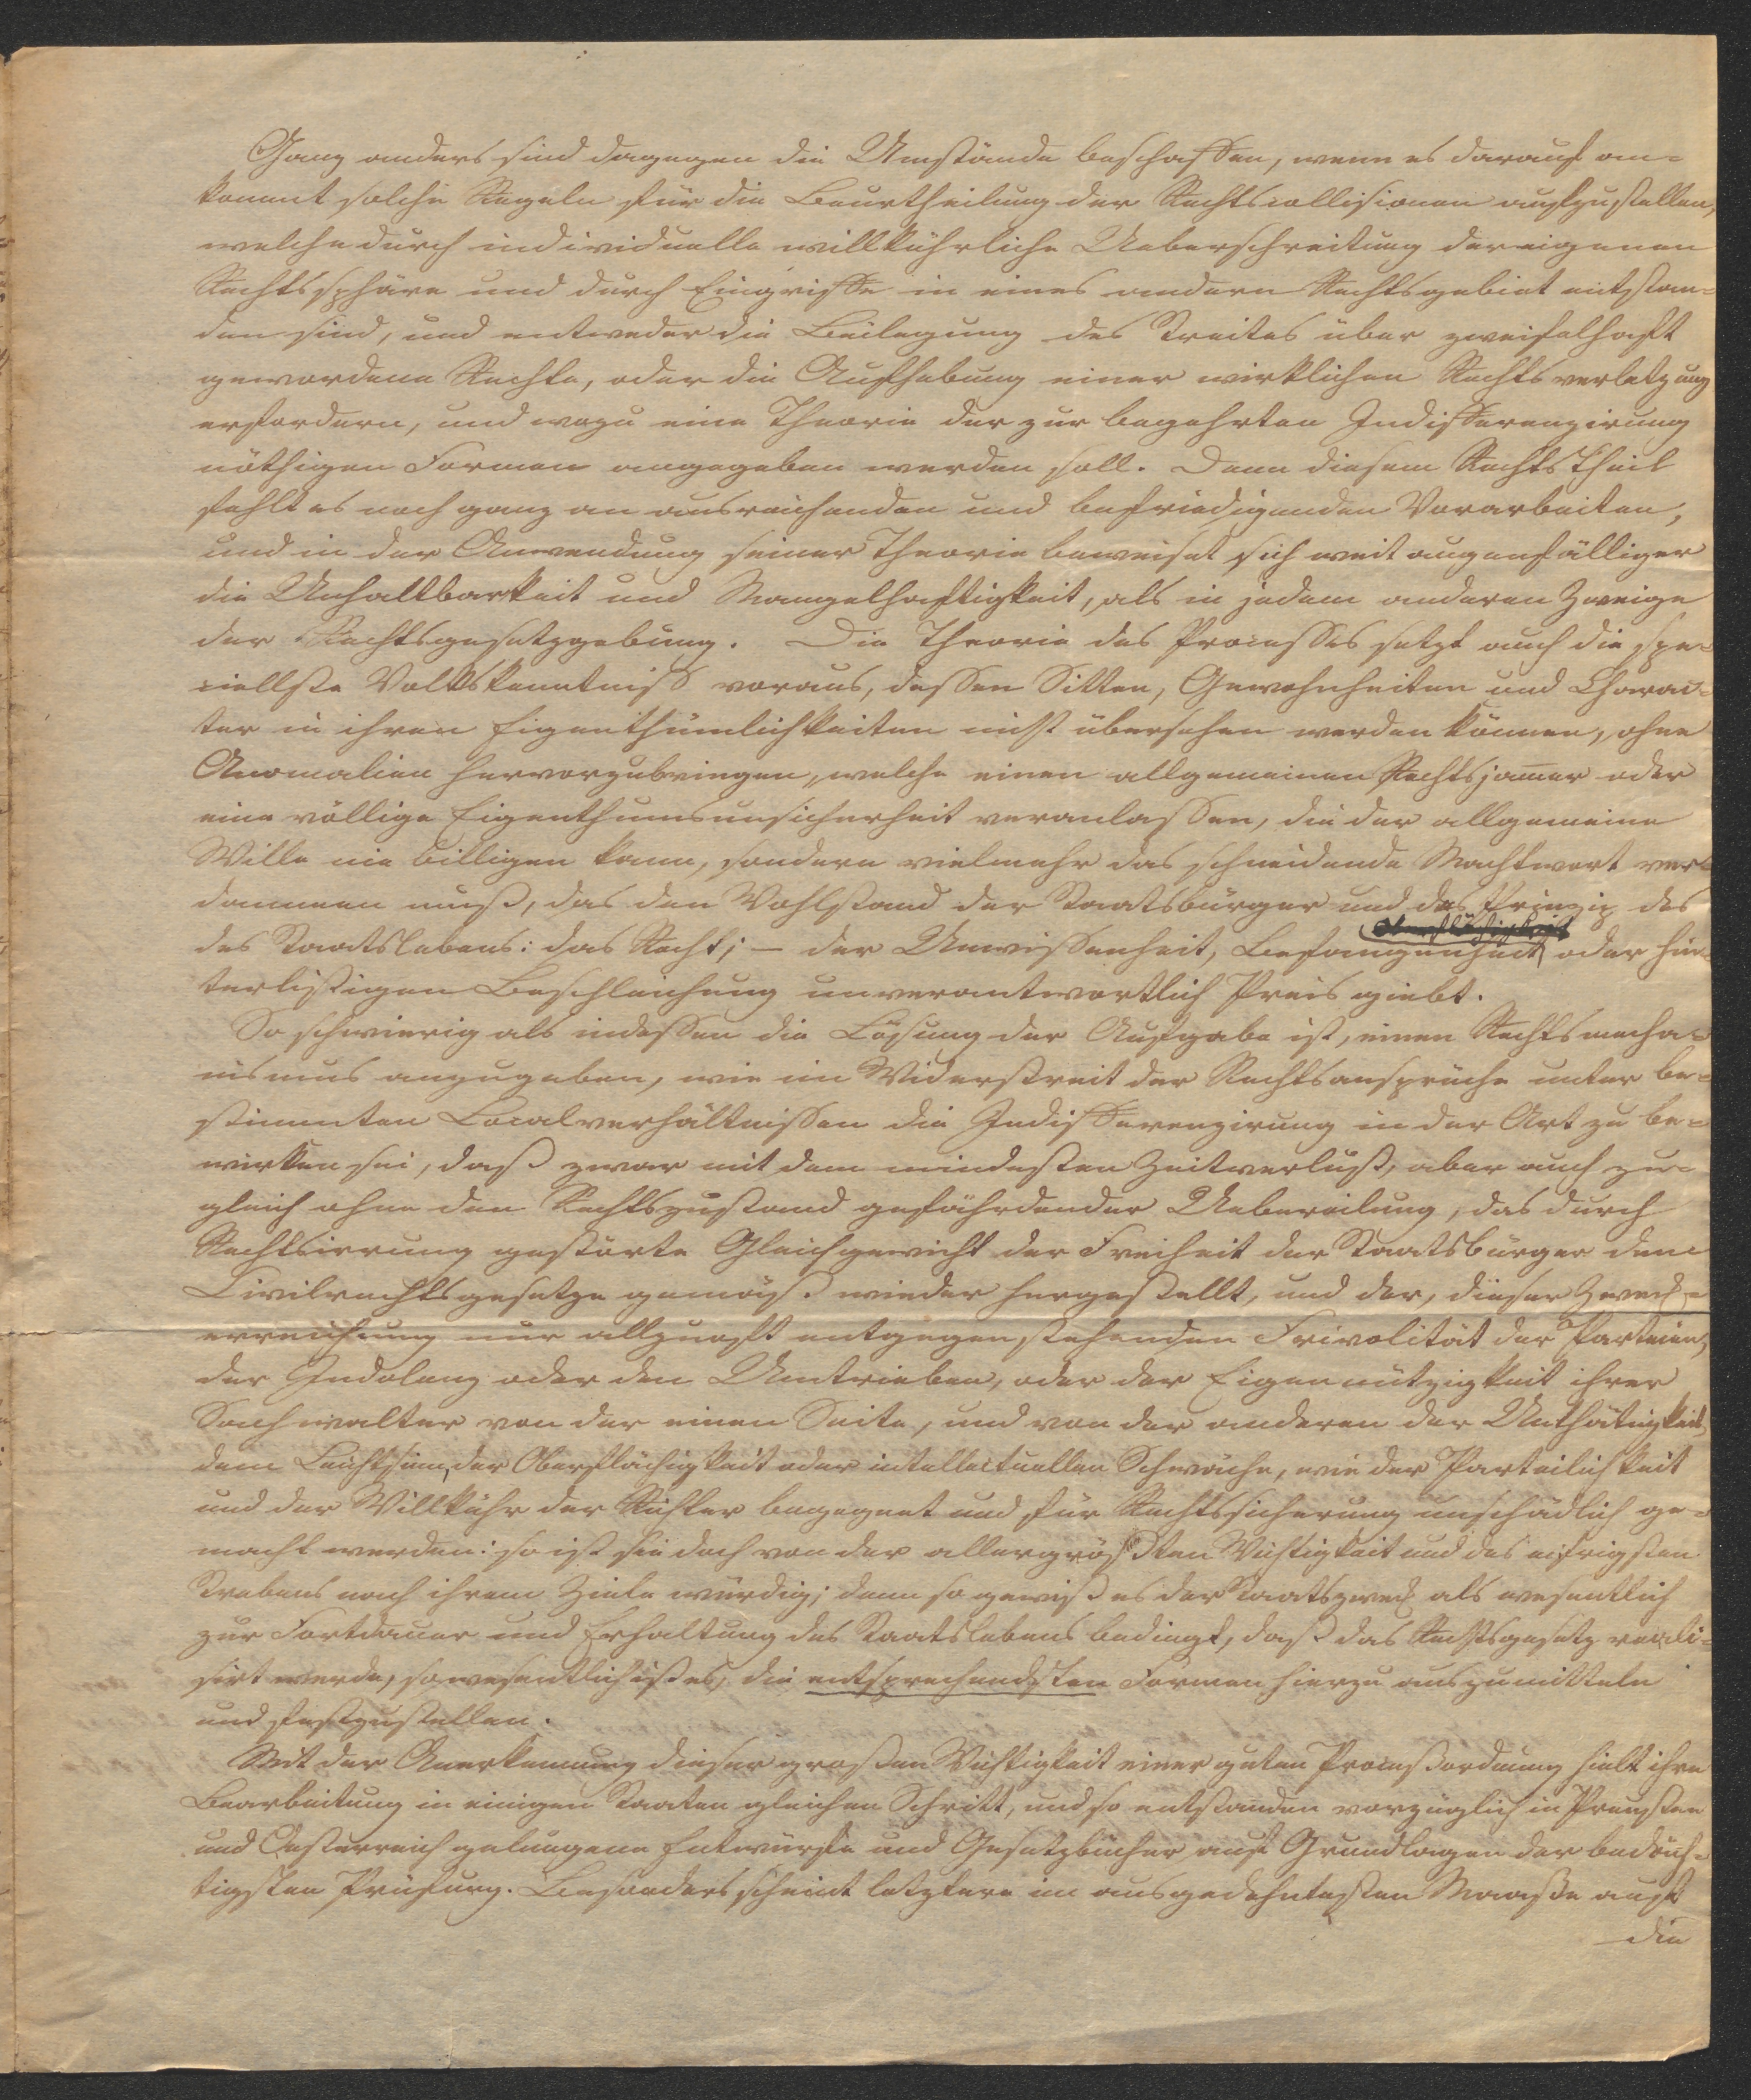 Ganz anders sind dagegen die Umstände beschaffen, wenn es darauf an=
kommt solche Regeln für die Beurtheilung der Rechtscollisionen aufzustellen,
welche durch individuelle willkührliche Ueberschreitung der eigenen
Rechtssphäre und durch Eingriffe in eines andern Rechtsgebiet entstan=
den sind, und entweder die Beilegung des Streites über zweifelhaft
gewordene Rechte, oder die Aufhebung einer wirklichen Rechtsverletzung
erfordern, und wozu eine Theorie der zur begehrten Indifferenzirung
nöthigen Formen angegeben werden soll. Denn diesem Rechtstheil
fehlt es noch ganz an ausreichenden und befriedigenden Vorarbeiten,
und in der Anwendung seiner Theorie beweiset sich weit augenfälliger
die Unhaltbarkeit und Mangelhaftigkeit, als in jedem anderen Zweige
der Rechtsgesetzgebung. Die Theorie des Processes setzt auch die spe=
ciellste Volkskenntniß voraus, dessen Sitten, Gewohnheiten und Charac=
ter in ihren Eigenthümlichkeiten nicht übersehen werden können, ohne
Anomalien hervorzubringen, welche einen allgemeinen Rechtsjam̄er oder
eine völlige Eigenthumsunsicherheit veranlassen, die der allgemeine
Wille nie billigen kann, sondern vielmehr das schneidende Machtwort ver=
dammen muß, das den Wohlstand der Staatsbürger und das Prinzip des
des Staatslebens: das Recht; – der Unwissenheit, Befangenheit oder hin=
terlistigen Beschleichung unverantwortlich Preis giebt.
So schwierig als indessen die Lösung der Aufgabe ist, einen Rechtsmecha=
nismus anzugeben, wie im Widerstreit der Rechtsansprüche unter be=
stimmten Localverhältnissen die Indifferenzirung in der Art zu be=
wirken sei, daß zwar mit dem mindesten Zeitverlust, aber auch zu=
gleich ohne den Rechtszustand gefährdender Uebereilung, das durch
Rechtsirrung gestörte Gleichgewicht der Freiheit der Staatsbürger dem
Civilrechtsgesetze gemäß wieder hergestellt, und der, dieser Zweck=
erreichung nur allzuoft entgegenstehenden Frivolität der Parteien,
der Indolenz oder den Umtrieben, oder der Eigennützigkeit ihrer
Sachwalter von der einen Seite, und von der anderen der Unthätigkeit,
dem Leichtsinn, der Oberflächigkeit oder intellectuellen Schwäche, wie der Parteilichkeit
und der Willkühr der Richter begegnet und für Rechtssicherung unschädlich ge=
macht werden: so ist sie doch von der allergrößten Wichtigkeit und des eifrigsten
Strebens nach ihrem Ziele würdig; denn so gewiß es der Staatszweck als wesentlich
zur Fortdauer und Erhaltung des Staatslebens bedingt, daß das Rechtsgesetz reali=
sirt werde, so wesentlich ist es, die entsprechendsten Formen hierzu auszumitteln
und festzustellen.
Mit der Anerkennung dieser großen Wichtigkeit einer guten Proceßordnung hielt ihre
Bearbeitung in einigen Staaten gleichen Schritt, und so entstanden vorzüglich in Preußen
und Oesterreich gelungene Entwürfe und Gesetzbücher auf Grundlagen der bedäch=
tigsten Prüfung. Besonders scheint letztere im ausgedehntesten Maaße auf
die